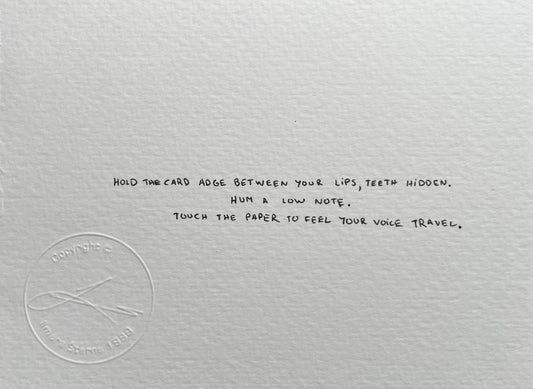 HOLD THE CARD ADGE BETWEEN YOUR LIPS, TEETH HIDDEN.
HUM A LOW NOTE.
TOUCH THE PAPER TO FEEL YOUR VOICE TRAVEL.
Copyright ©
1989